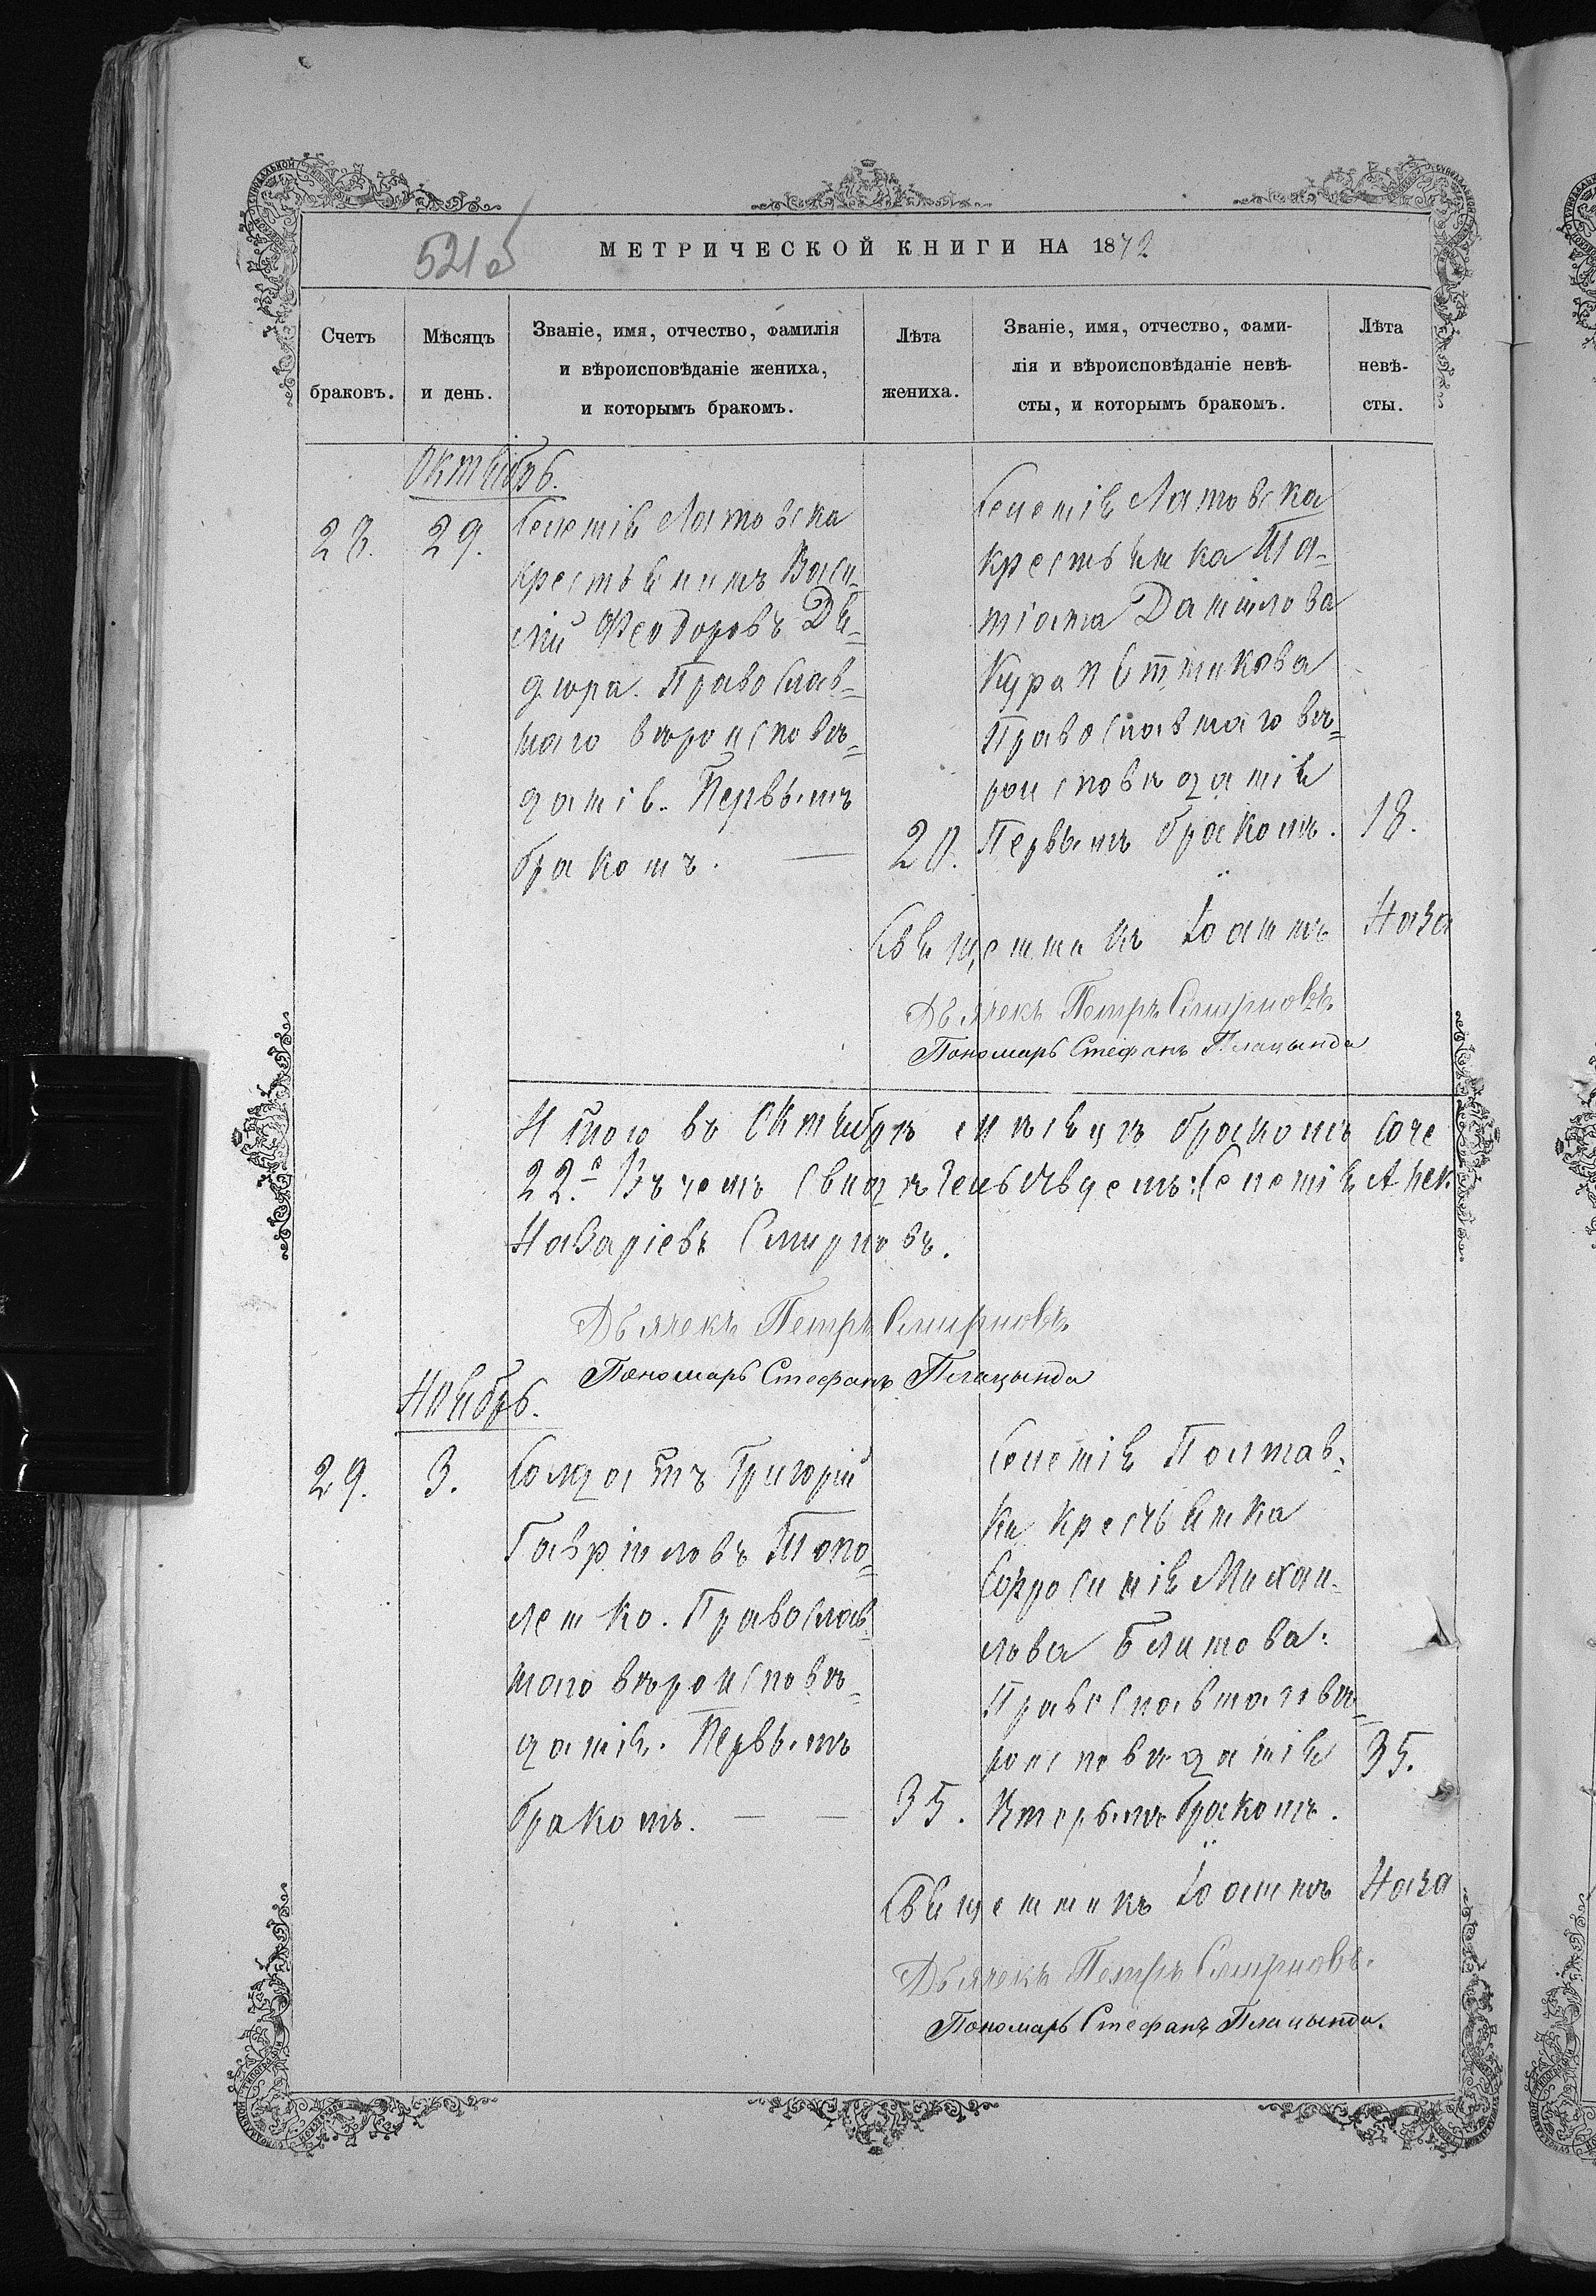 521 об
МЕТРИЧЕСКОЙ КНИГИ НА 1872
Счетъ браковъ.
Мѣсяцъ и день.
Званіе, имя, отчество, фамилія
и вѣроисповѣданіе жениха,
и которымъ бракомъ.
Лѣта жениха.
Званіе, имя, отчество, фами-
лія и вѣроисповѣданіе невѣ-
сты, и которымъ бракомъ.
Лѣта невѣ-
сты.
Октябрь.
28.
29.
Селенія Латовска
крестьянинъ Васи-
лій Феодоровъ Дя-
дюра. Православ-
наго вѣроисповѣ-
данія. Первымъ
бракомъ.
20.
Селенія Латовска
крестьянка Та-
тіана Данилова
Курапятникова
Православнаго вѣ-
роисповѣданія
Первымъ бракомъ.
18.
Священникъ Іоаннъ Наза
Дьячекъ Петръ Смирновъ
Пономарь Стефанъ Плацында
Итого въ Октябрѣ мѣсяцѣ бракомъ соче
22.е Въ чемъ свидѣтельствуемъ: Селенія
Назаріевъ Смирновъ.
Дьячекъ Петръ Смирновъ
Пономарь Стефанъ Плацында
Ноябрь.
29.
3.
Солдатъ Григорій
Гавріиловъ Топо-
ленко. Православ-
наго вѣроисповѣ-
данія. Первымъ
бракомъ.
35.
Селенія Полтав-
ки крестьянка
Ефросинія Михаи-
лова Блитова:
Православнаго вѣ-
роисповѣданія
Вторымъ бракомъ.
35.
Священникъ Іоаннъ Наза
Дьячекъ Петръ Смирновъ.
Пономарь Стефанъ Плацында.